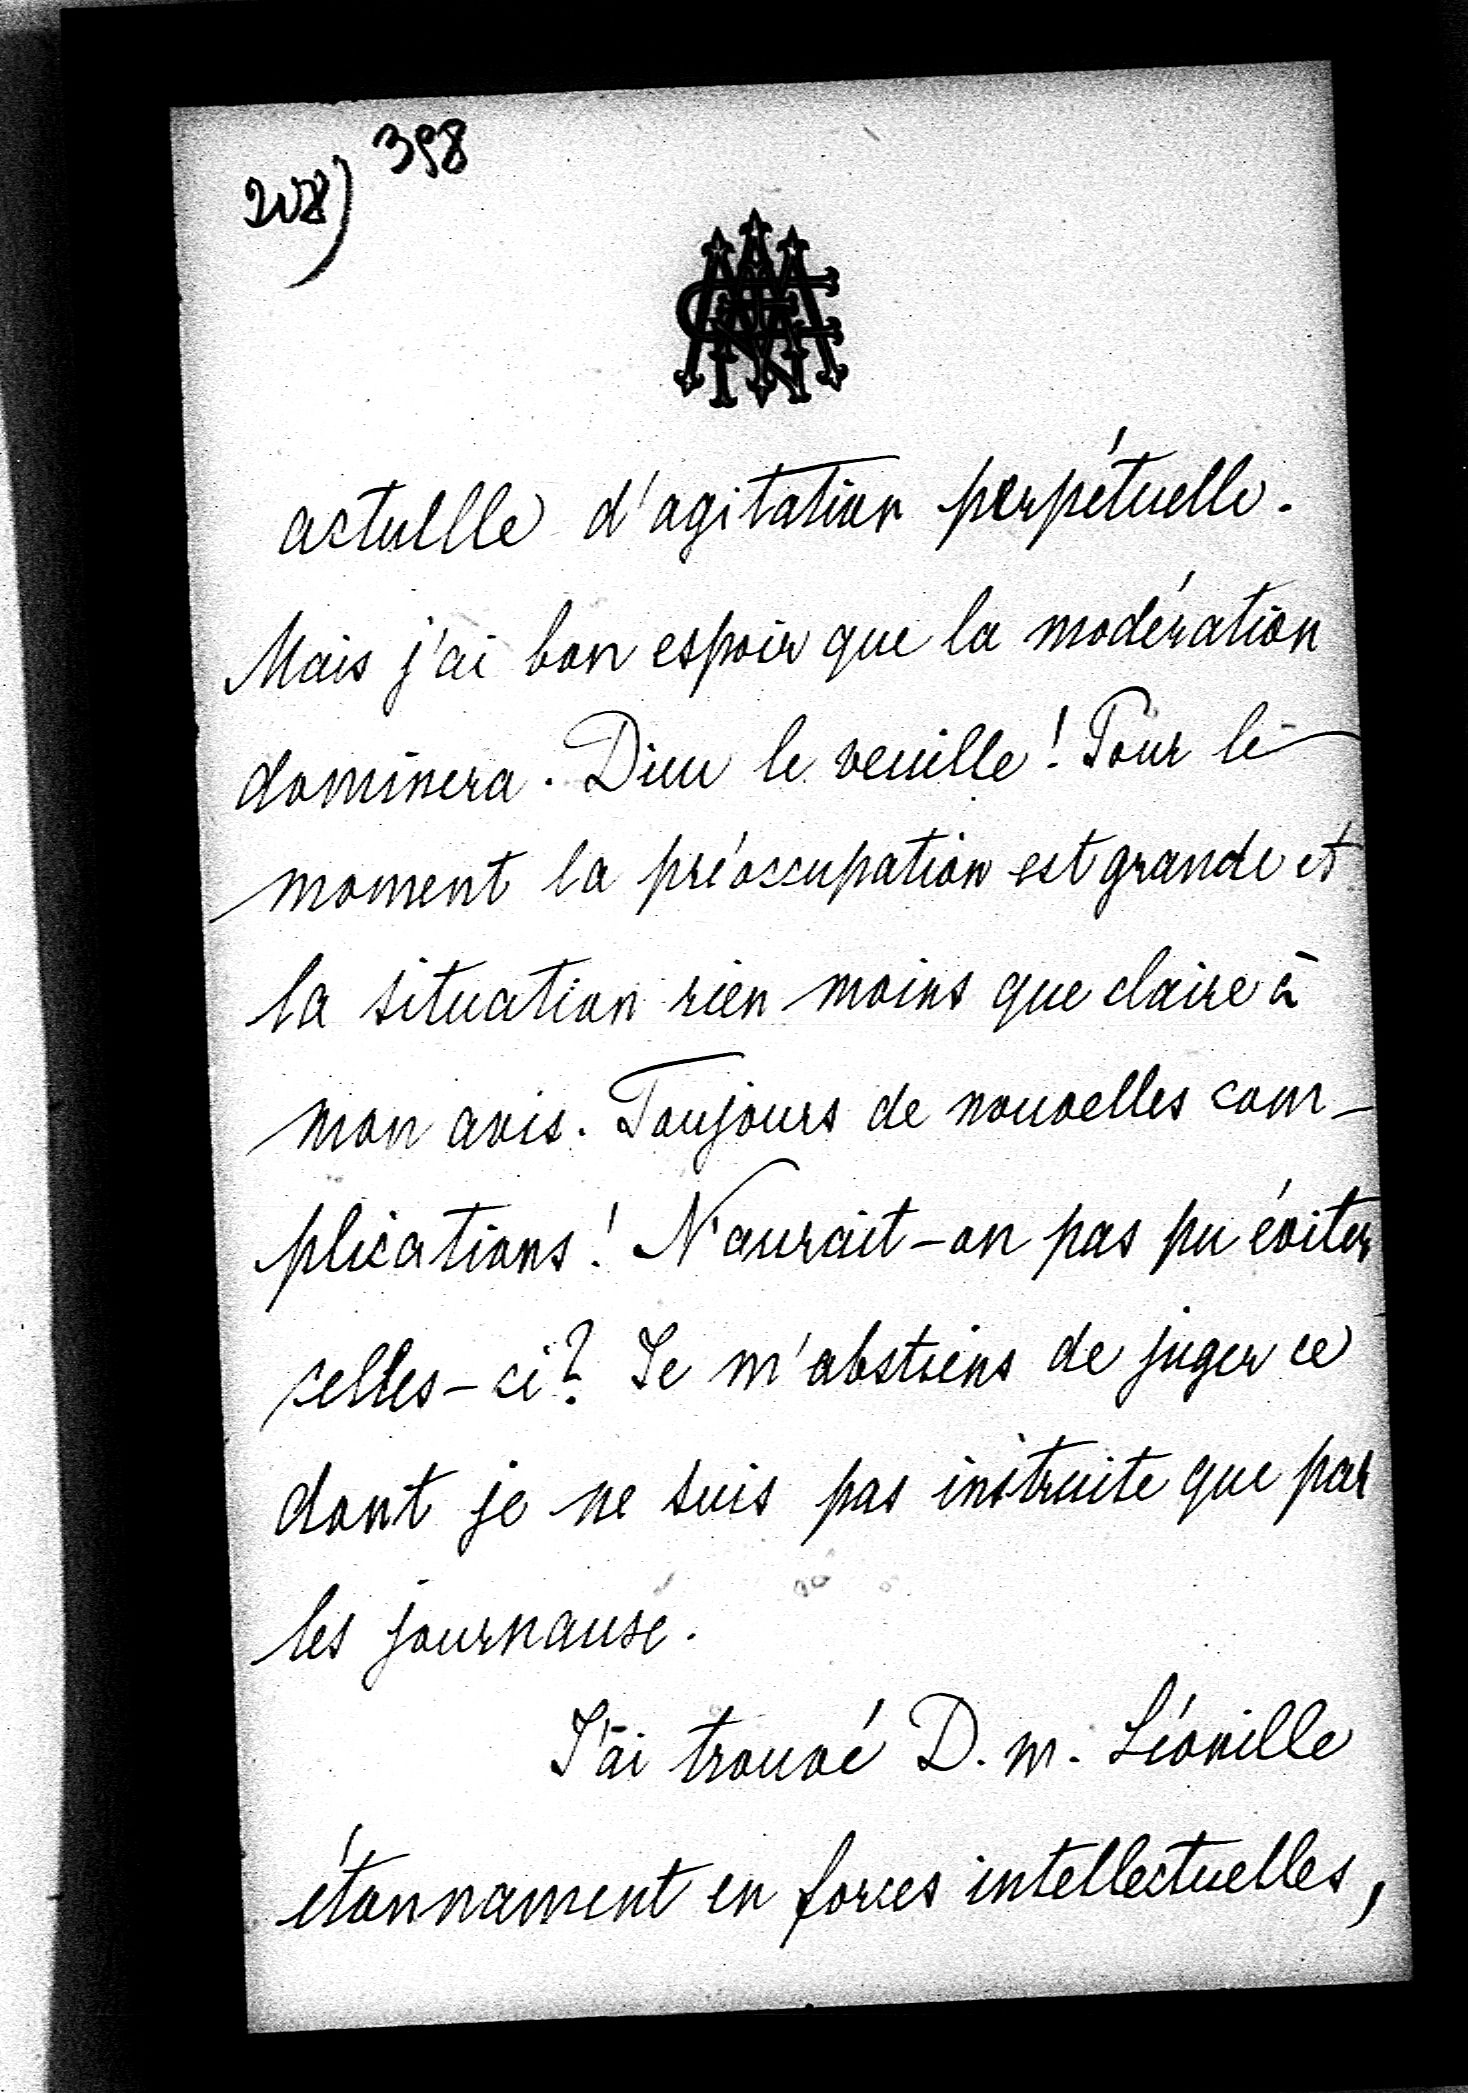 208) 398
actuelle d'agitation perpétuelle.
Mais j'ai bon espoir que la modération
dominera. Dieu le veuille! Pour le
moment la préoccupation est grande et
la situation rien moins que claire à
mon avis. Toujours de nouvelles com-
plications! N'aurait-on pas pu éviter
celles-ci? Je m'abstiens de juger ce
dont je ne suis pas instruite que par
les journaux.
J'ai trouvé D. M. Léonille
étonnament en forces intellectuelles,